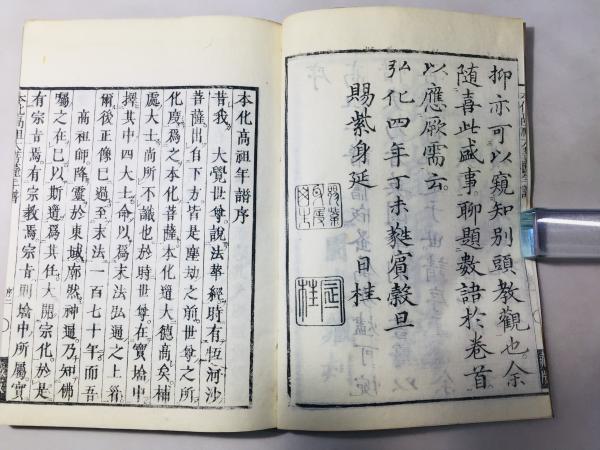 抑亦可以窺知別頭教觀也余
随喜此盛事聊題数語於卷首
以應厥需云
弘化四年丁未蕤賓穀旦
賜紫身延 日桂
本化高祖年譜序
昔我 大覺世尊說法華經時有恆河沙
菩薩出自下方皆是塵劫之前世尊之所
化度爲之本化菩薩本化邁大德高矣補
處大士尚所不識也於時世尊在寶塔中
擇其中四大士命以爲末法弘通之上
爾後正像已過至末法一百七十年而吾
高祖師降靈於東域廓然神邁乃知佛
囑之在已以斯道爲其任大開宗化於是
有宗旨焉有宗教焉宗旨則塔中所屬實